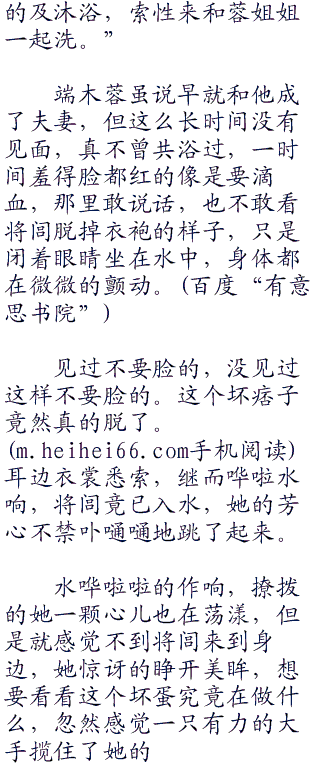 的及沐浴，索性来和蓉姐姐
一起洗。”
端木蓉虽说早就和他成
了夫妻，但这么长时间没有
见面，真不曾共浴过，一时
间羞得脸都红的像是要滴
血，那里敢说话，也不敢看
将闾脱掉衣袍的样子，只是
闭着眼睛坐在水中，身体都
在微微的颤动。(百度“有意
思书院”)
见过不要脸的，没见过
这样不要脸的。这个坏痞子
竟然真的脱了。
(m.heihei66.com手机阅读)
耳边衣裳悉索，继而哗啦水
响，将闾竟已入水，她的芳
心不禁卟嗵嗵地跳了起来。
水哗啦啦的作响，撩拨
的她一颗心儿也在荡漾，但
是就感觉不到将闾来到身
边，她惊讶的睁开美眸，想
要看看这个坏蛋究竟在做什
么，忽然感觉一只有力的大
手揽住了她的